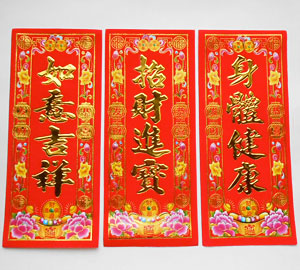 如意吉祥
招財進寶
身體健康